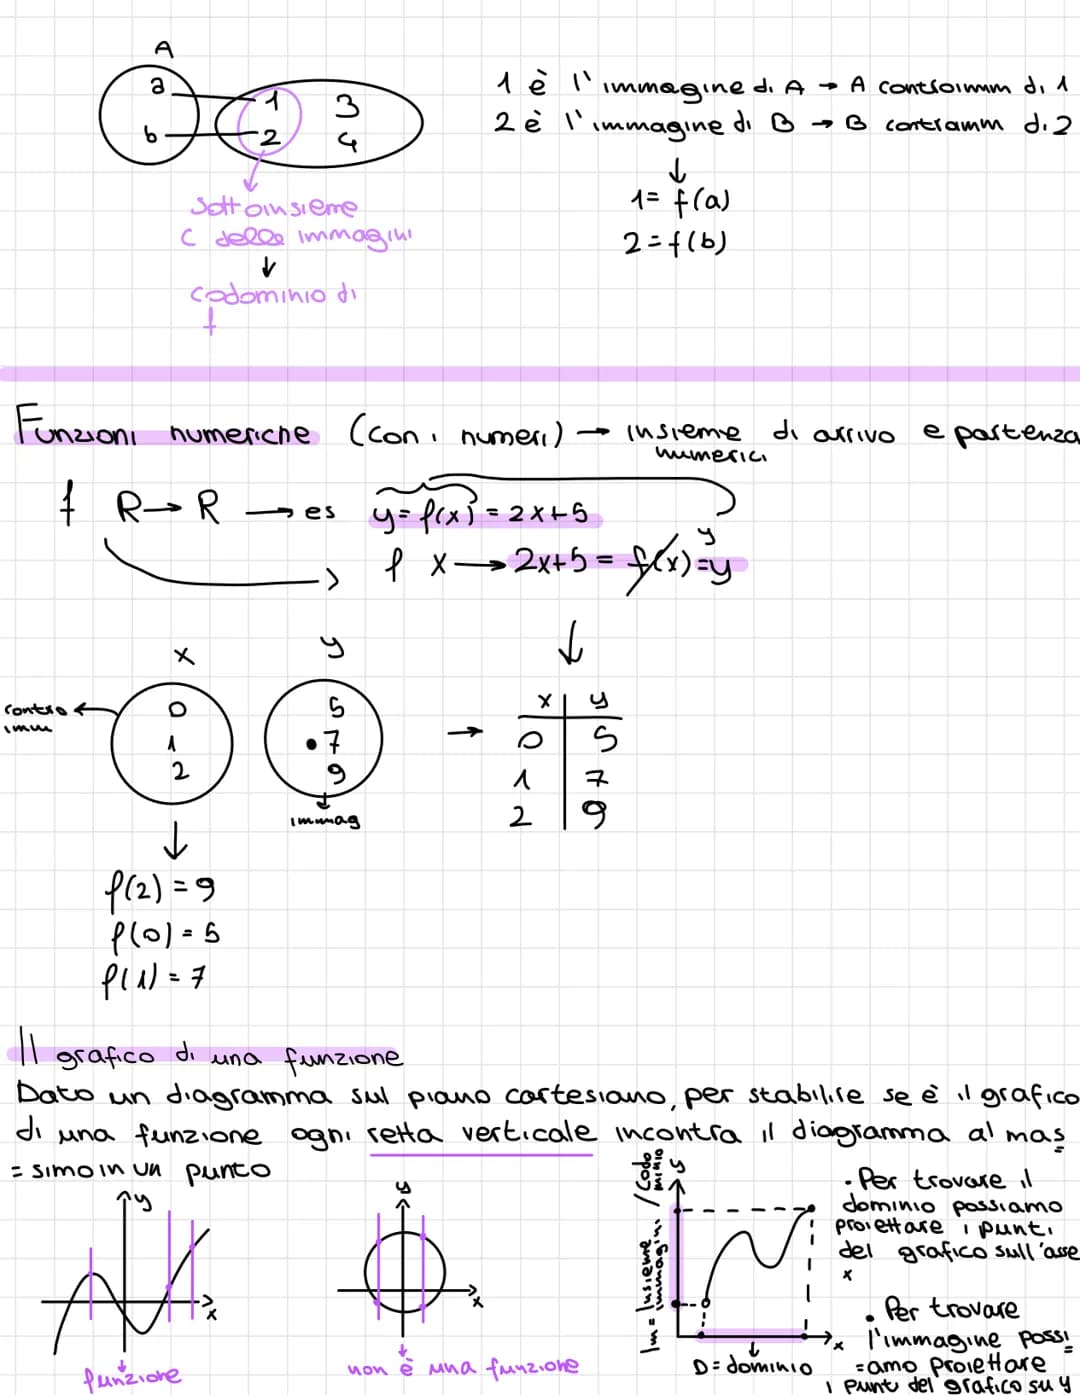 A
a 1 3
b 2 4
1 è l'immagine di A → A controimm di 1
2 è l'immagine di B → B contramm di 2
↓
1 = f(a)
2 = f(b)
Sottoinsieme
C delle immagini
↓
codominio di
f
Funzioni numeriche (con i numeri) → insieme di arrivo e partenza
numerici
f R → R → es y = f(x) = 2x+5
y
f x → 2x+5 = f(x) = y
↓
x y
contro
imm
0 5
1 •7
2 9
immag
→
x y
0 5
1 7
2 9
↓
f(2) = 9
f(0) = 5
f(1) = 7
Il grafico di una funzione
Dato un diagramma sul piano cartesiano, per stabilire se è il grafico
di una funzione ogni retta verticale incontra il diagramma al mas
= simo in un punto
y
x
funzione
y
x
non è una funzione
Im = Insieme immagini / Codominio
y
x
D = dominio
• Per trovare il
dominio possiamo
proiettare i punti
del grafico sull'asse
x
• Per trovare
l'immagine possi
= amo proiettare
i punti del grafico su y